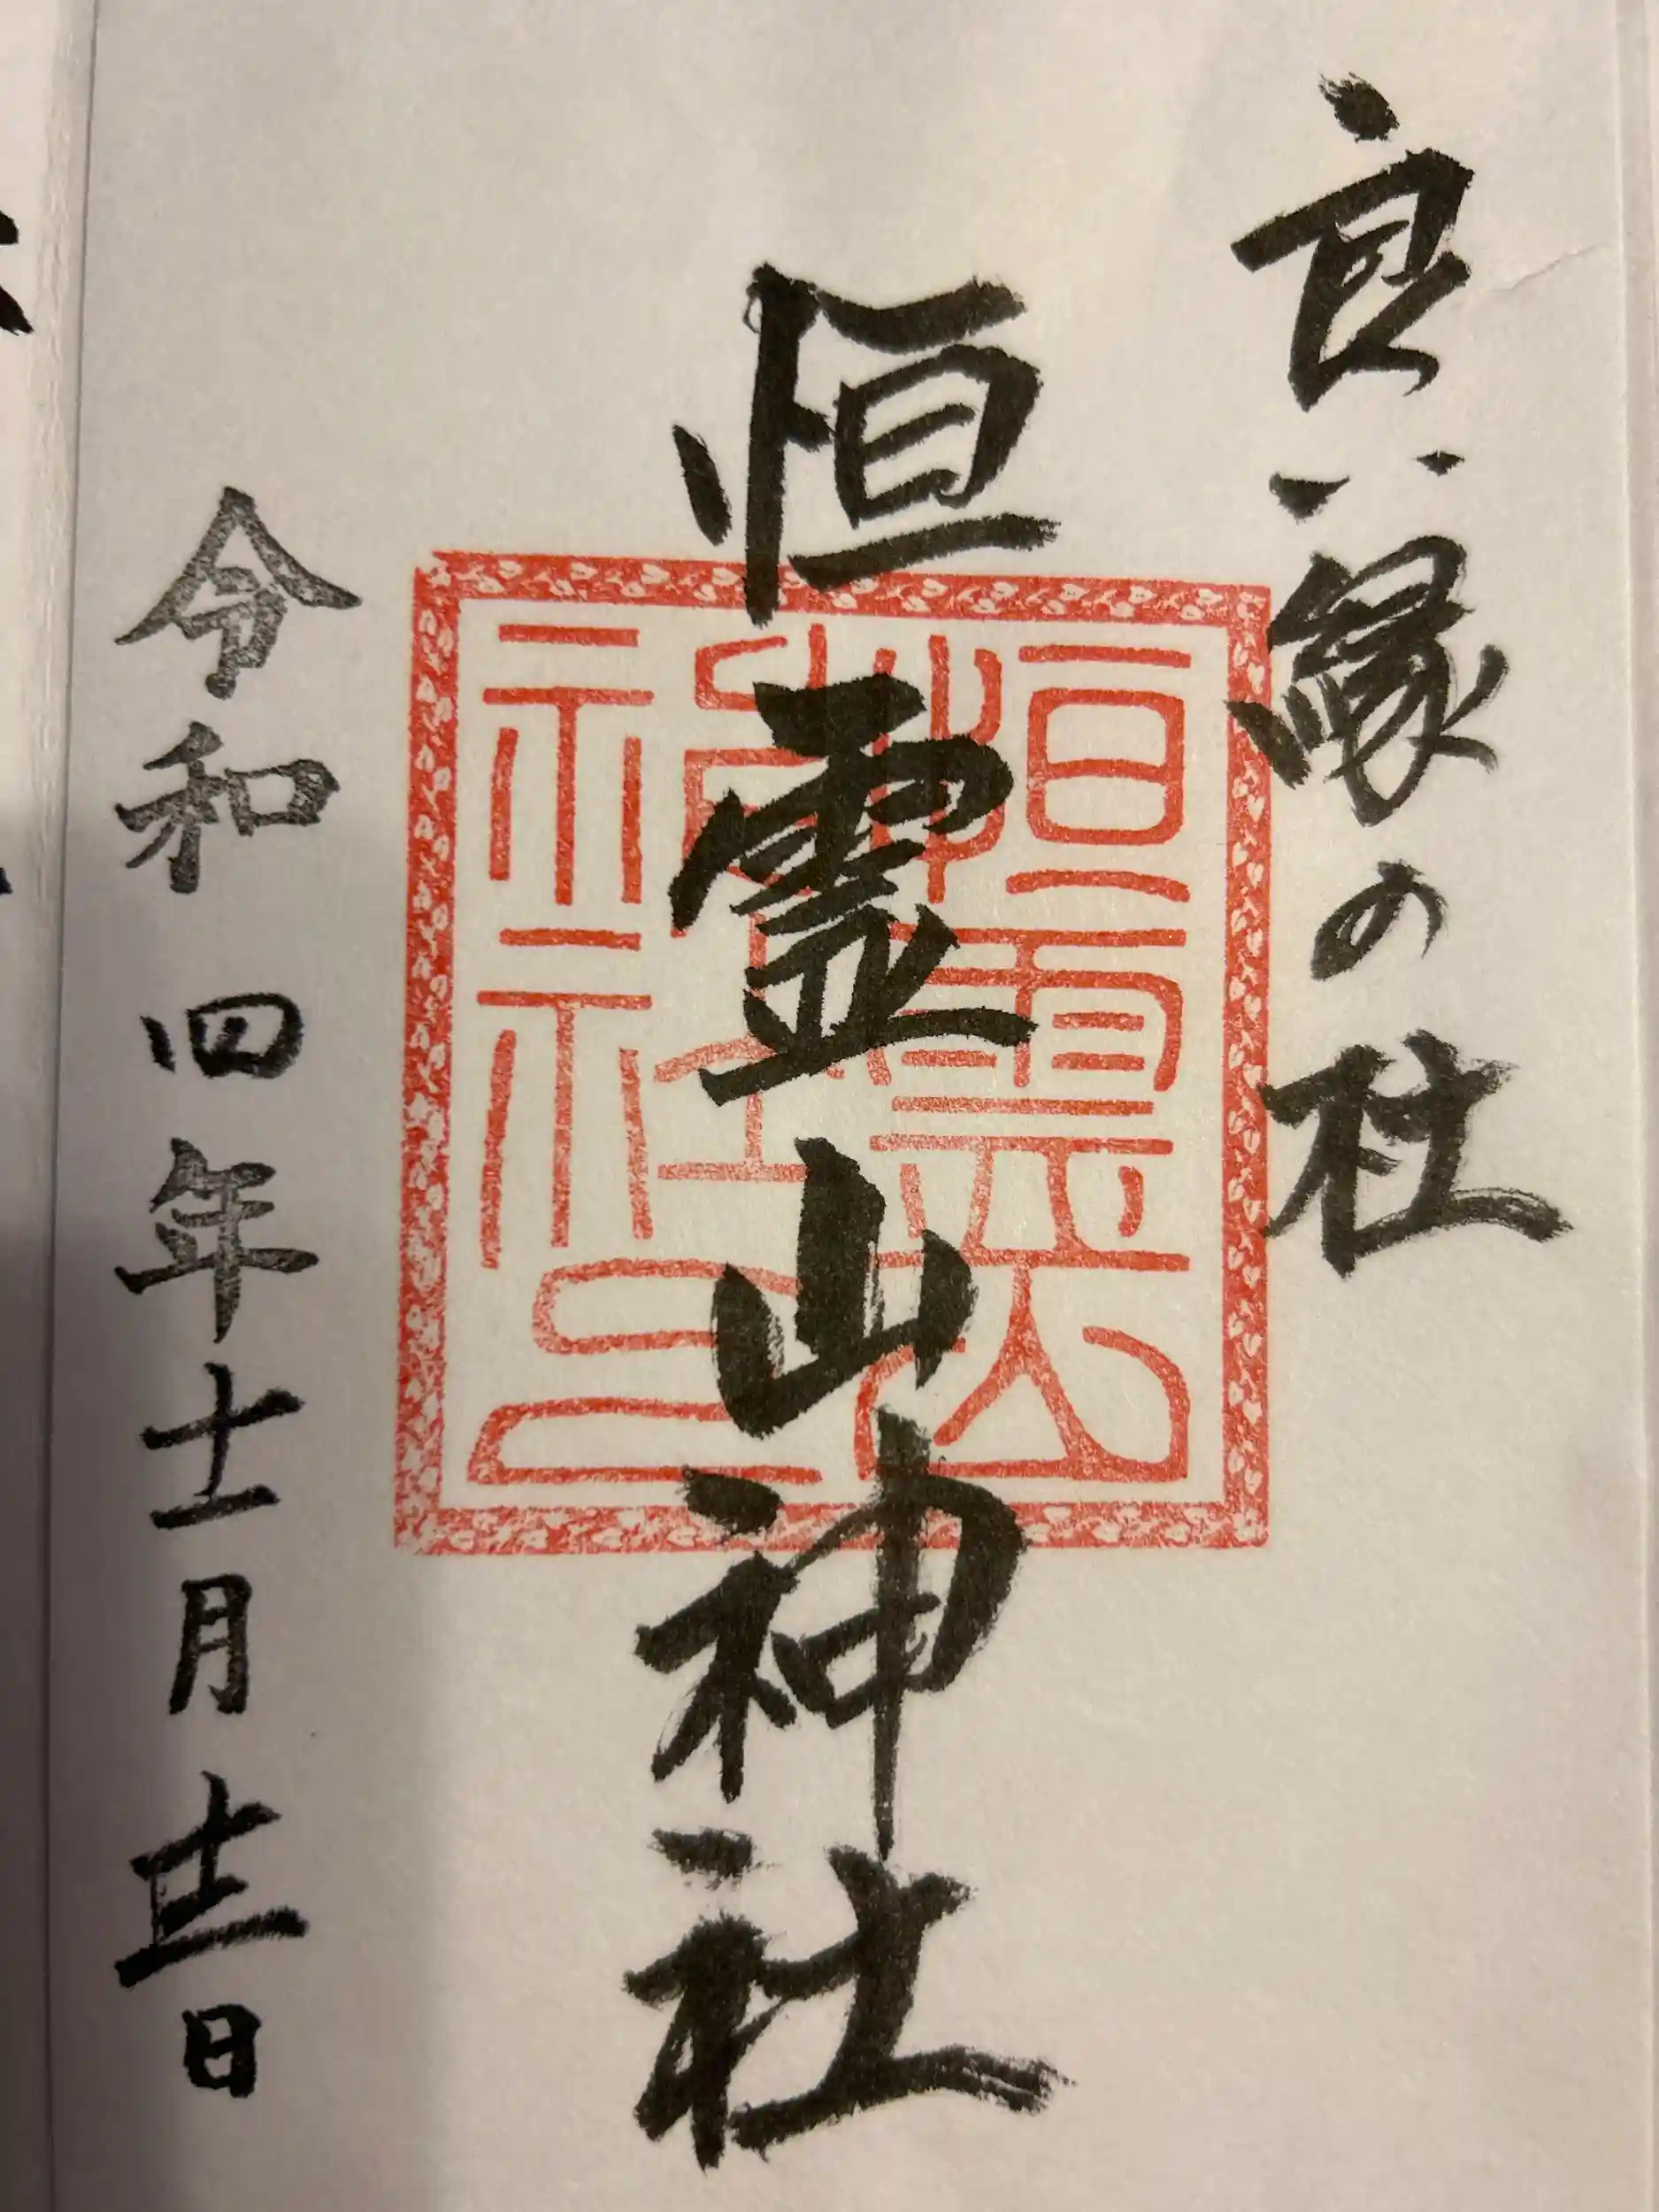 良い縁の杜
恒霊山神社
恒霊山
神社印
令和四年十一月
日